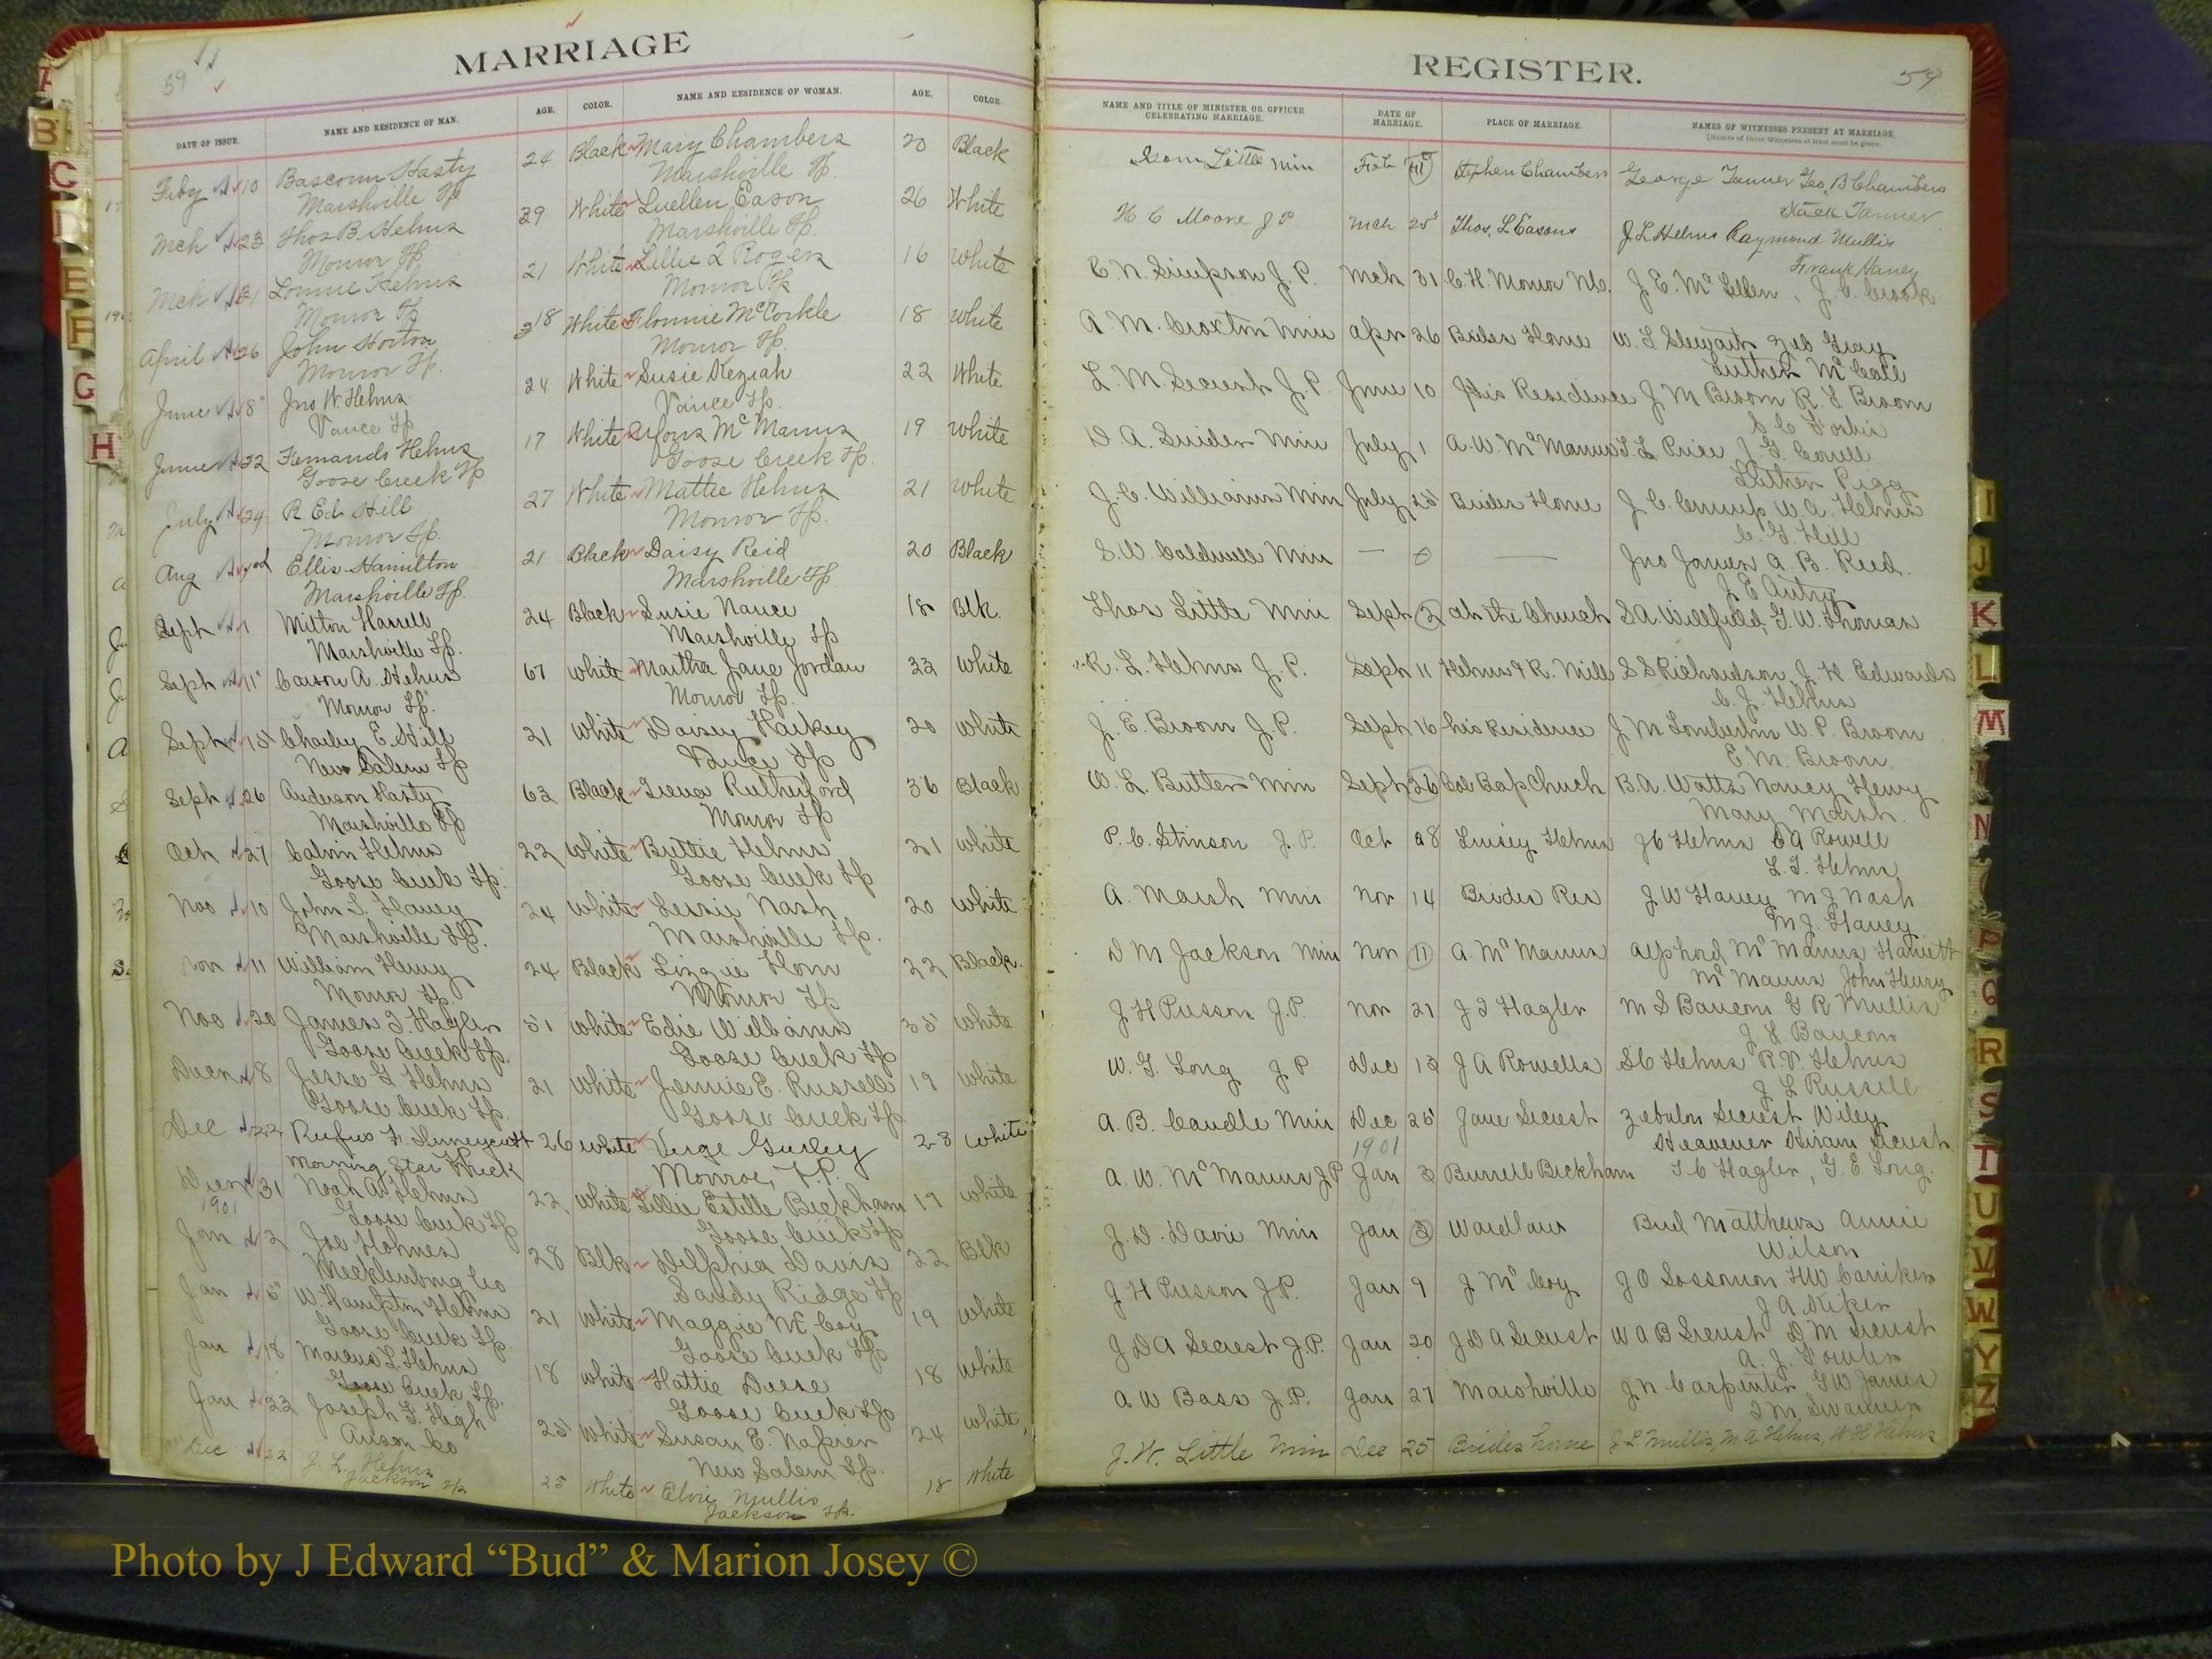 59
MARRIAGE
DATE OF ISSUE. NAME AND RESIDENCE OF MAN. AGE. COLOR. NAME AND RESIDENCE OF WOMAN. AGE. COLOR.
Feby 10 Bascom Hasty 24 Black Mary Chambers 20 Black
Marshville Tp Marshville Tp.
Mch 23 Thos B. Helms 39 White Luellen Eason 26 White
Monroe Tp. Marshville Tp.
Mch 31 Lonnie Helms 21 White Lillie L Rogers 16 White
Monroe Tp Monroe Tp
April 26 John Horton 18 White Flonnie McCorkle 18 White
Monroe Tp. Monroe Tp.
June 8 Jno W. Helms 24 White Susie Keziah 22 White
Vance Tp Vance Tp.
June 22 Fernands Helms 17 White McManus 19 White
Goose Creek Tp Goose Creek Tp.
July 24 R Ed Hill 27 White Mattie Helms 21 White
Monroe Tp. Monroe Tp.
Aug Ellis Hamilton 21 Black Daisy Reid 20 Black
Marshville Tp. Marshville Tp
Sept 1 Milton Harrell 24 Black Susie Nance 18 Blk.
Marshville Tp. Marshville Tp
Sept 11 Carson A. Helms 67 White Martha Jane Jordan 33 White
Monroe Tp. Monroe Tp.
Sept 15 Charley E. Hill 21 White Daisy Harkey 20 White
New Salem Tp Vance Tp
Sept 26 Anderson Hasty 63 Black Rutherford 36 Black
Marshville Tp Monroe Tp
Oct 27 Calvin Helms 22 White Bettie Helms 21 White
Goose Creek Tp. Goose Creek Tp
Nov 10 John L. Haney 24 White Lessie Nash 20 White
Marshville Tp. Marshville Tp.
Nov 11 William Henry 24 Black Lizzie Horn 22 Black
Monroe Tp. Monroe Tp
Nov 20 James I. Hagler 51 White Edie Williams 35 White
Goose Creek Tp. Goose Creek Tp
Decm 8 Jesse G Helms 21 White Jennie E. Russell 19 White
Goose Creek Tp. Goose Creek Tp
Dec 22 Rufus F. Huneycutt 26 White Verge Gurley 23 White
Morning Star Monroe, T.P.
Decm 31 Noah A. Helms 22 White Lillie Estelle Bickham 19 White
1901 Goose Creek Tp Goose Creek Tp
Jan 2 Joe Holmes 28 Blk Delphia Davis 22 Blk
Mecklenburg Co Sandy Ridge Tp
Jan 5 W. Hampton Helms 21 White Maggie McCoy 19 White
Goose Creek Tp. Goose Creek Tp
Jan 18 Marcus L. Helms 18 White Hattie Deese 18 White
Goose Creek Tp. Goose Creek Tp
Jan 22 Joseph F. High 25 White Susan E. Napier 24 White
Anson Co New Salem Tp.
Dec 22 J. L. Helms 25 White Elvie Mullis 18 White
Jackson Tp Jackson Tp.
REGISTER.
59
NAME AND TITLE OF MINISTER OR OFFICER CELEBRATING MARRIAGE. DATE OF MARRIAGE. PLACE OF MARRIAGE. NAMES OF WITNESSES PRESENT AT MARRIAGE.
[Names of three Witnesses at least must be given.
Isom Little Min Feb 11 Stephen Chambers George Tanner Geo, B Chambers
Jack Tanner
H C Moore J P Mch 25 Thos, L Easons J L Helms Raymond Mullis
Frank Haney
C N. Simpson J. P. Mch 31 C. H. Monroe N.C. J. E. McLellen, J. C. Crook
A. M. Croxton Min Apr 26 Brides Home W. L Stewart Zeb Gray
Luther McCall
L. M. Secrest J. P. June 10 His Residence J M Broom R. L Broom
D. A. Snider Min July 1 A. W. McManus L. L Price J. G. Correll
Luther Pigg
J. C. Williams Min July 25 Brides Home J. C. Crump W. A. Helms
C. G. Hill
S. W. Caldwell Min — 0 — Jno James A. B. Reid.
J E Autry
Thos Little Min Sept 2 at the Church S. A. Willfield, G. W. Thomas
R. L. Helms J. P. Sept 11 Helms & R. Mills S S Richardson J. H. Edwards
C. J. Helms
J. E. Broom J. P. Sept 16 his Residence J M Tomberlin W. P. Broom
E. M. Broom.
W. L. Butler Min Sept 26 Col Bap Church B. A. Watts Nancy Henry
Mary Marsh.
P. C. Stinson J. P. Oct 28 Linsey Helms J C Helms C A Rowell
L. T. Helms
A. Marsh Min Nov 14 Brides Res J W Haney M J Nash
M J. Haney
D M Jackson Min Nov 11 A. McManus Alphord McManus Harriett
McManus John Henry
J H Presson J. P. Nov 21 J I Hagler M S Baucom G R Mullis
J L Baucom
W. G. Long J P Dec 13 J A Rowells S C Helms R. V. Helms
J L Russell
A. B. Caudle Min Dec 25 Jane Secrest Zebulon Secrest Wiley
1901 Heavener Hiram Secrest
A. W. McManus J P Jan 3 Burrell Bickham T C Hagler, G. E. Long.
J. D. Davie Min Jan 3 Wardlaw Bud Matthews Annie
Wilson
J H Presson J. P. Jan 9 J McCoy J O Sossomon H W Caniker
J A Stiker
J D A Secrest J. P. Jan 20 J D A Secrest W A B Secrest D M Secrest
A. J. Fowler
A W Bass J. P. Jan 27 Marshville J. N Carpenter G W James
J. W. Little Min Dec 25 Brides home J L Mullis, M A Helms, W H Helms
B
C
D
E
F
G
H
I
J
K
L
M
N
P
Q
R
S
T
U
V
W
Y
Z
Photo by J Edward “Bud” & Marion Josey ©